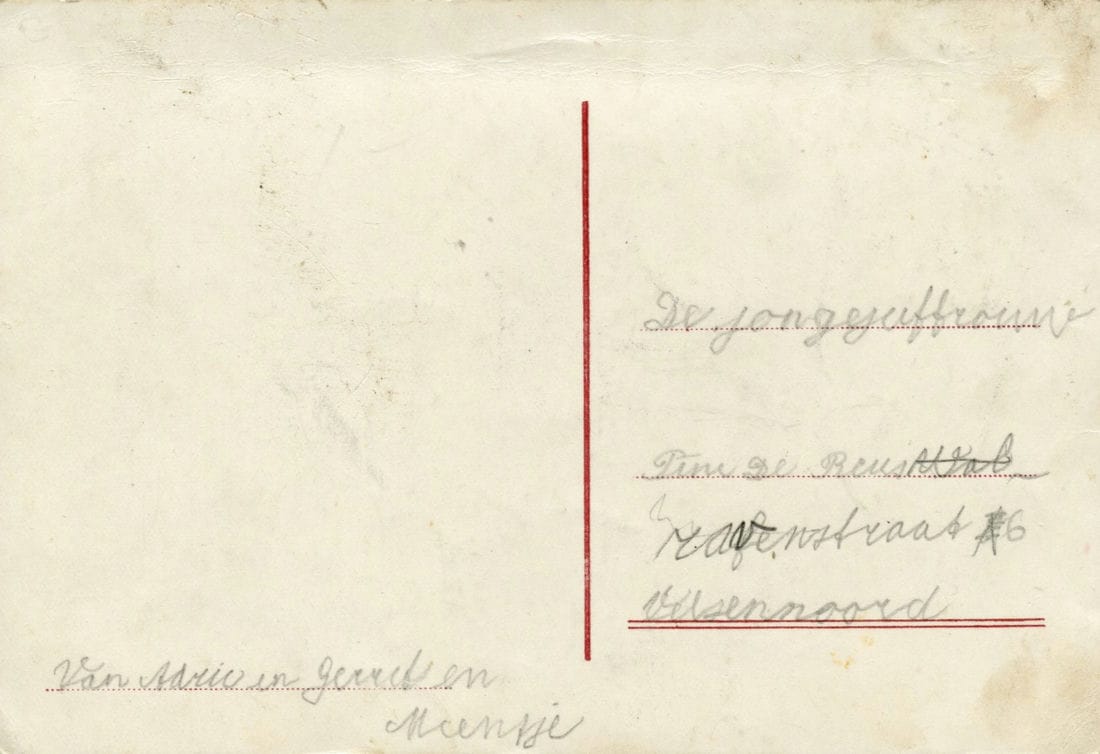 De jongejuffrouw
Tini De Reus
straat 6
Velsennoord
Van Adrie en Gerret en
Meentje